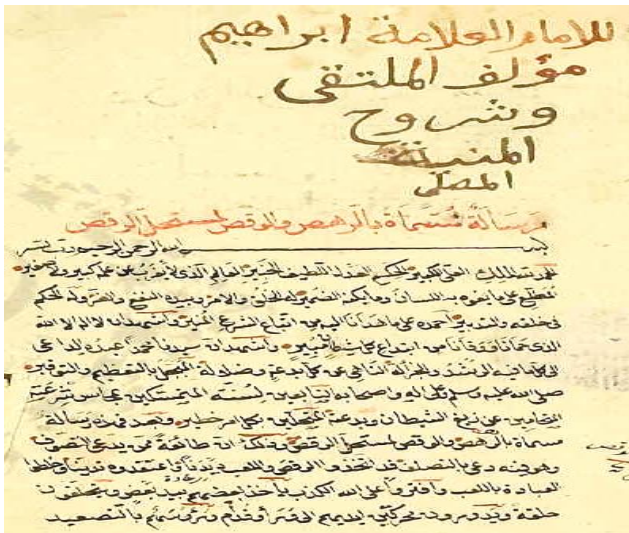 للامام العلامة ابراهيم
مؤلف الملتقى
وشروح
المنية
المصلى
رسالة مسماة بالرهص والوقص لمستحل الرقص
بسم الله الرحمن الرحيم وبه نستعين
الحمد لله الملك العلي الكبير الحكم العدل اللطيف الخبير العالم الذي لا يعزب عن علمه كبير ولا صغير
المطلع على ما يفوه به اللسان وما يكنه الضمير له الخلق والامر وبيده النفع والضر وله الحكم
في خلقه والتدبير احمده على ما هدانا اليه من اتباع الشرع المنير واشهد ان لا اله الا الله
الذي حمانا ووقانا من ابتداع كل شيطان واشهد ان سيدنا محمدا عبده الداعي
الى كل ما فيه الرشد والخير له الناهي عن كل بدعة وضلالة المبجل بالتعظيم والتوقير
صلى الله عليه وسلم وعلى اله واصحابه التابعين لسنته المتمسكين بمجالس شرعته
المحامين عن زيغ الشيطان وبدعة المنتحلين بكل امر خطير وبعد فهذه رسالة
مسماة بالرهص والوقص لمستحل الرقص وذلك ان طائفة ممن يدعي التصوف
وهو فيه دعي بالتصلف قد اتخذوا الرقص واللعب ديدنا واعتقدوه دينا خلطوا
العبادة باللعب وافتروا على الله الكذب يأخذ بعضهم بيد بعض ويتحلقون
حلقة ويدورون محركين ايديهم الى ورا وقدام ورؤسهم بالتصعيد